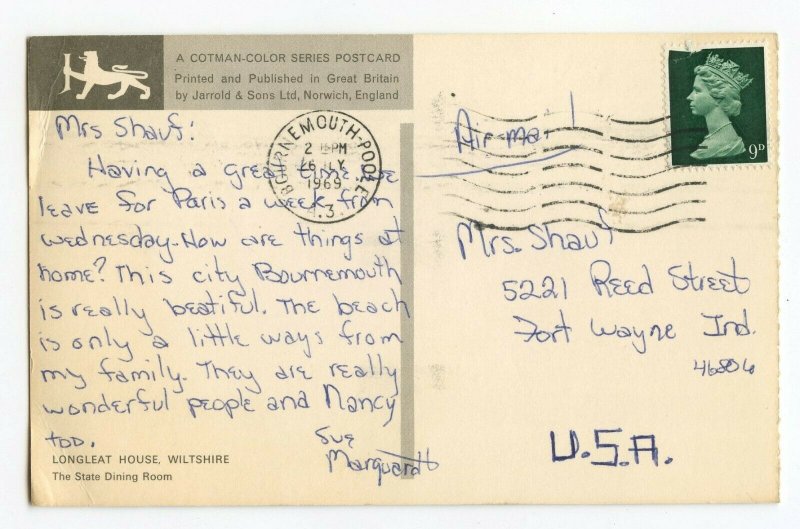 A COTMAN-COLOR SERIES POSTCARD
Printed and Published in Great Britain
by Jarrold & Sons Ltd, Norwich, England
Mrs Shauf:
Having a great time we
leave for Paris a week from
wednesday. How are things at
home? This city Bournemouth
is really beatiful. The beach
is only a little ways from
my family. They are really
wonderful people and Nancy
too.
Sue
Marquardt
LONGLEAT HOUSE, WILTSHIRE
The State Dining Room
BOURNEMOUTH-POOLE
PM
1969
Air mail
9D
Mrs. Shauf
5221 Reed Street
Fort Wayne Ind.
46806
U.S.A.